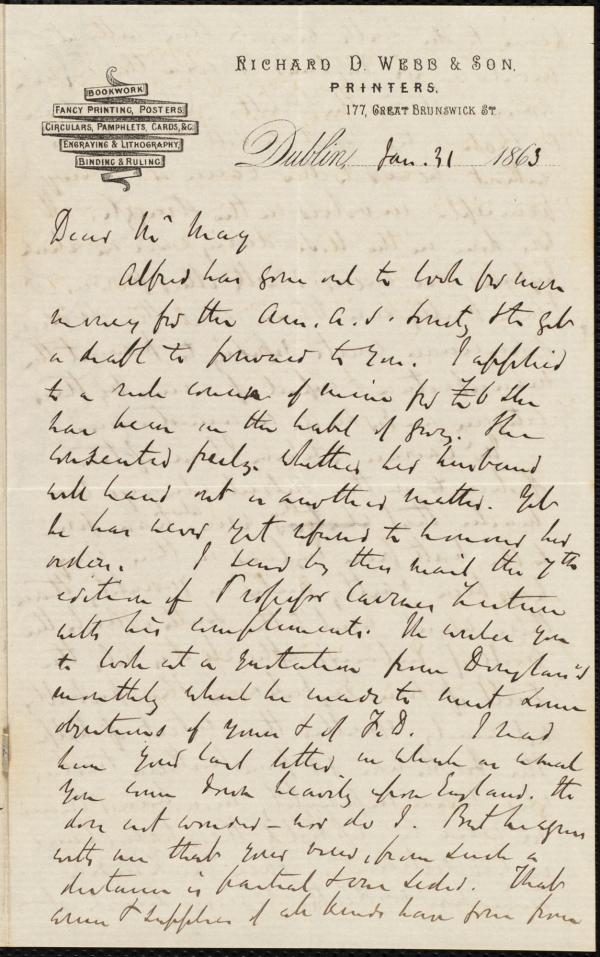 RICHARD D. WEBB & SON,
PRINTERS,
177, GREAT BRUNSWICK ST
BOOKWORK
FANCY PRINTING, POSTERS
CIRCULARS, PAMPHLETS, CARDS, &C.
ENGRAVING & LITHOGRAPHY,
BINDING & RULING
Dublin, Jan. 31 1863
Dear Mr May
Alfred has gone out to look for more
money for the Am. A. S. Society & to get
a draft to forward to you. I applied
to a rich cousin of mine for the £6 she
has been in the habit of giving. She
consented freely. Whether her husband
will hand out is another matter. Yet
he has never yet refused to honour her
orders. I send by this mail the 7th
edition of Professor Cairnes lecture
with his compliments. He wishes you
to look at a quotation from Douglass's
monthly which he made to meet some
objections of yours & of F.D. I read
him your last letter in which as usual
you come down heavily upon England. He
does not wonder - nor do I. But he agrees
with me that your view, from such a
distance is partial & one sided. That
arms & supplies of all kinds have gone from